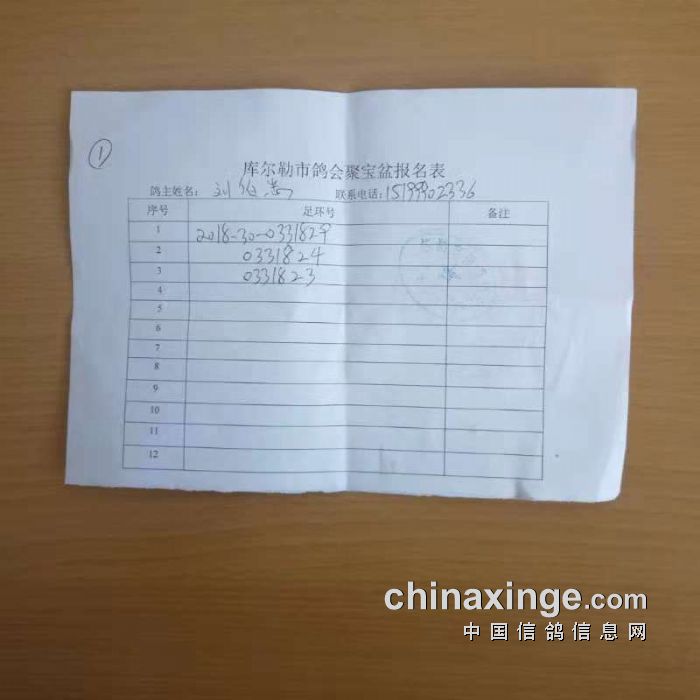 ①
库尔勒市鸽会聚宝盆报名表
鸽主姓名: 刘 联系电话:15199902336
序号 足环号 备注
1 2018-30-0331829
2 0331824
3 0331823
4
5
6
7
8
9
10
11
12
chinaxinge.com
中国信鸽信息网